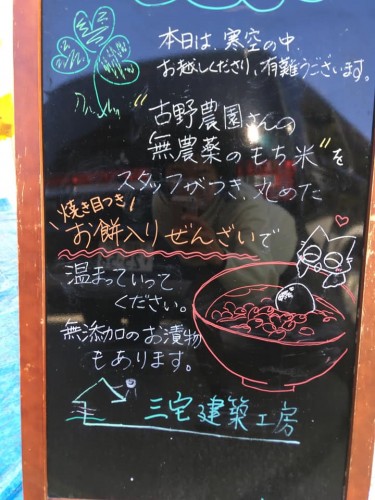 本日は、寒空の中、
お越しくださり、有難うございます。
"古野農園さんの
無農薬のもち米"を
スタッフがつき、丸めた
焼き目つき!
お餅入りぜんざいで
温まっていって
ください。
無添加のお漬物
もあります。
三宅建築工房